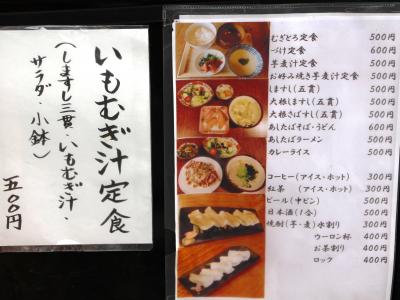 いもむぎ汁定食
(しますし三貫・いもむぎ汁・
サラダ・小鉢)
五〇〇円
むぎとろ定食 500円
づけ定食 600円
芋麦汁定食 500円
お好み焼き芋麦汁定食 500円
しますし(五貫) 500円
大根しますし(五貫) 500円
大根さばすし(五貫) 500円
あしたばそば・うどん 600円
あしたばラーメン 500円
カレーライス 500円
コーヒー(アイス・ホット) 300円
紅茶 (アイス・ホット) 300円
ビール(中ビン) 500円
日本酒(1合) 500円
焼酎(芋・麦)水割り 300円
ウーロン杯 400円
お茶割り 400円
ロック 400円